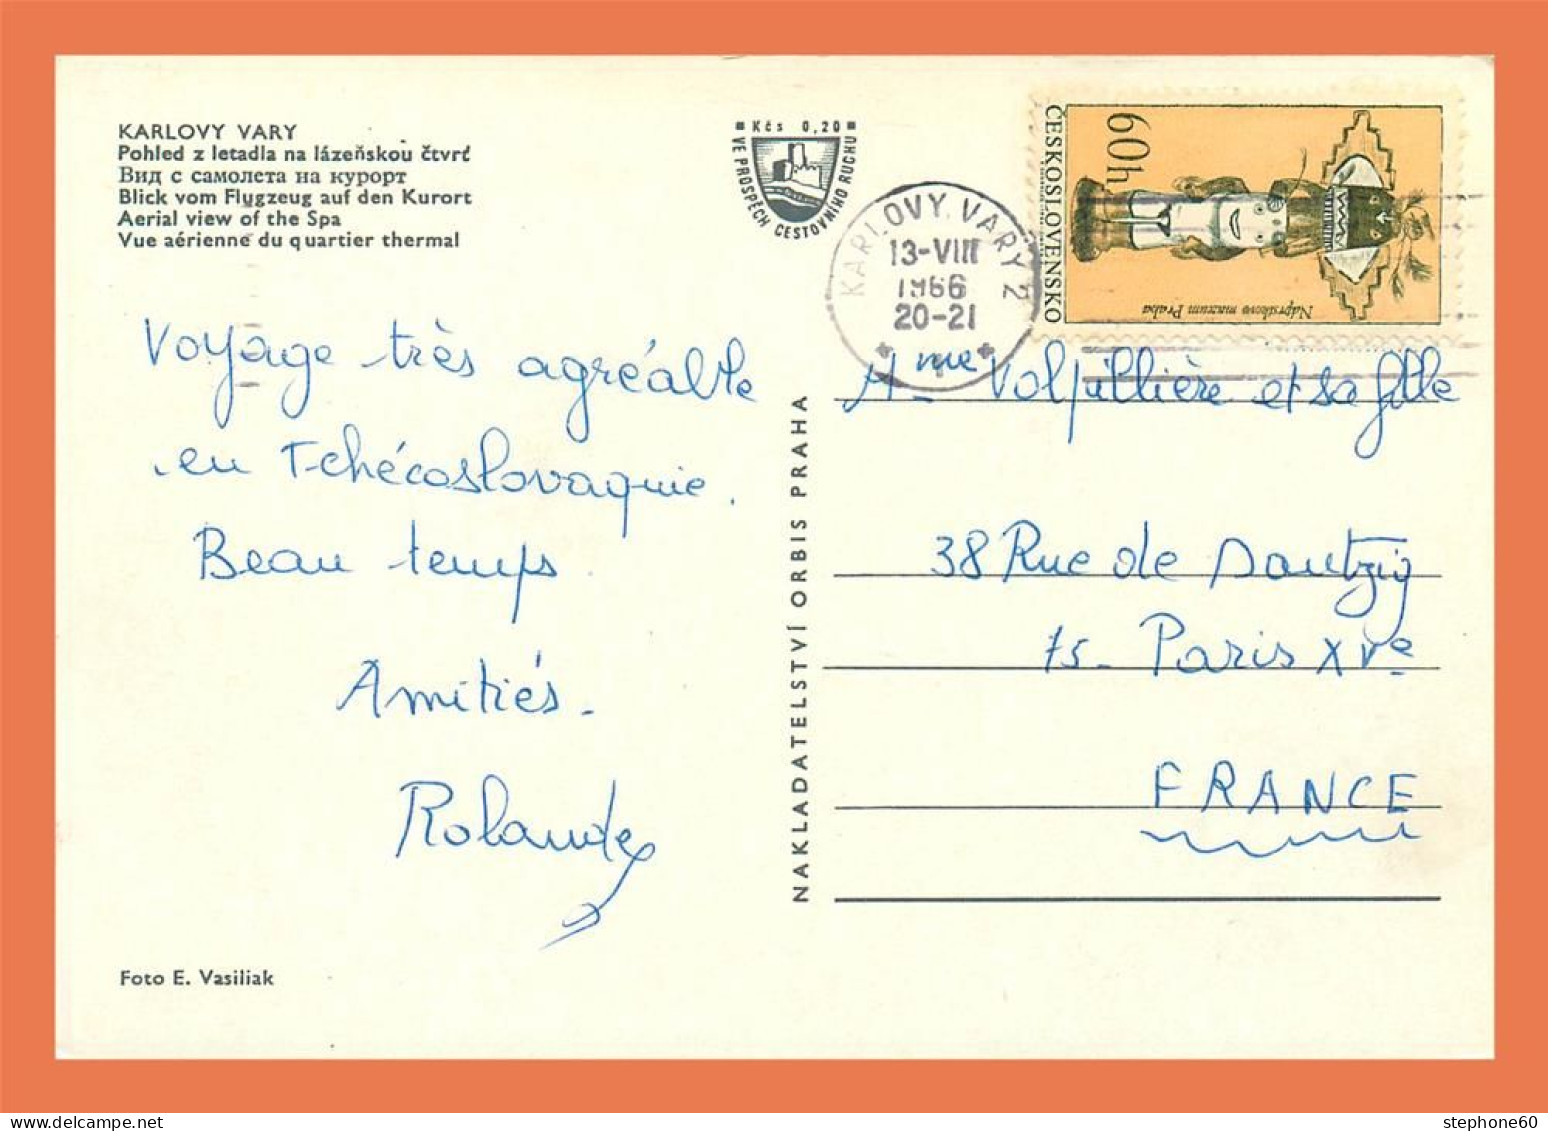 KARLOVY VARY
Pohled z letadla na lázeňskou čtvrť
Вид с самолета на курорт
Blick vom Flugzeug auf den Kurort
Aerial view of the Spa
Vue aérienne du quartier thermal
Kčs 0,20
VE PROSPĚCH CESTOVNÍHO RUCHU
KARLOVY VARY 2
13-VIII
1966
20-21
1
60h
ČESKOSLOVENSKO
Náprstkovo muzeum Praha
Voyage très agréable
en Tchécoslovaquie.
Beau temps.
Amitiés.
Rolande
NAKLADATELSTVÍ ORBIS PRAHA
Mme Volpillière et sa fille
38 Rue de Dantzig
75 - Paris XVe
FRANCE
Foto E. Vasiliak
stephone60